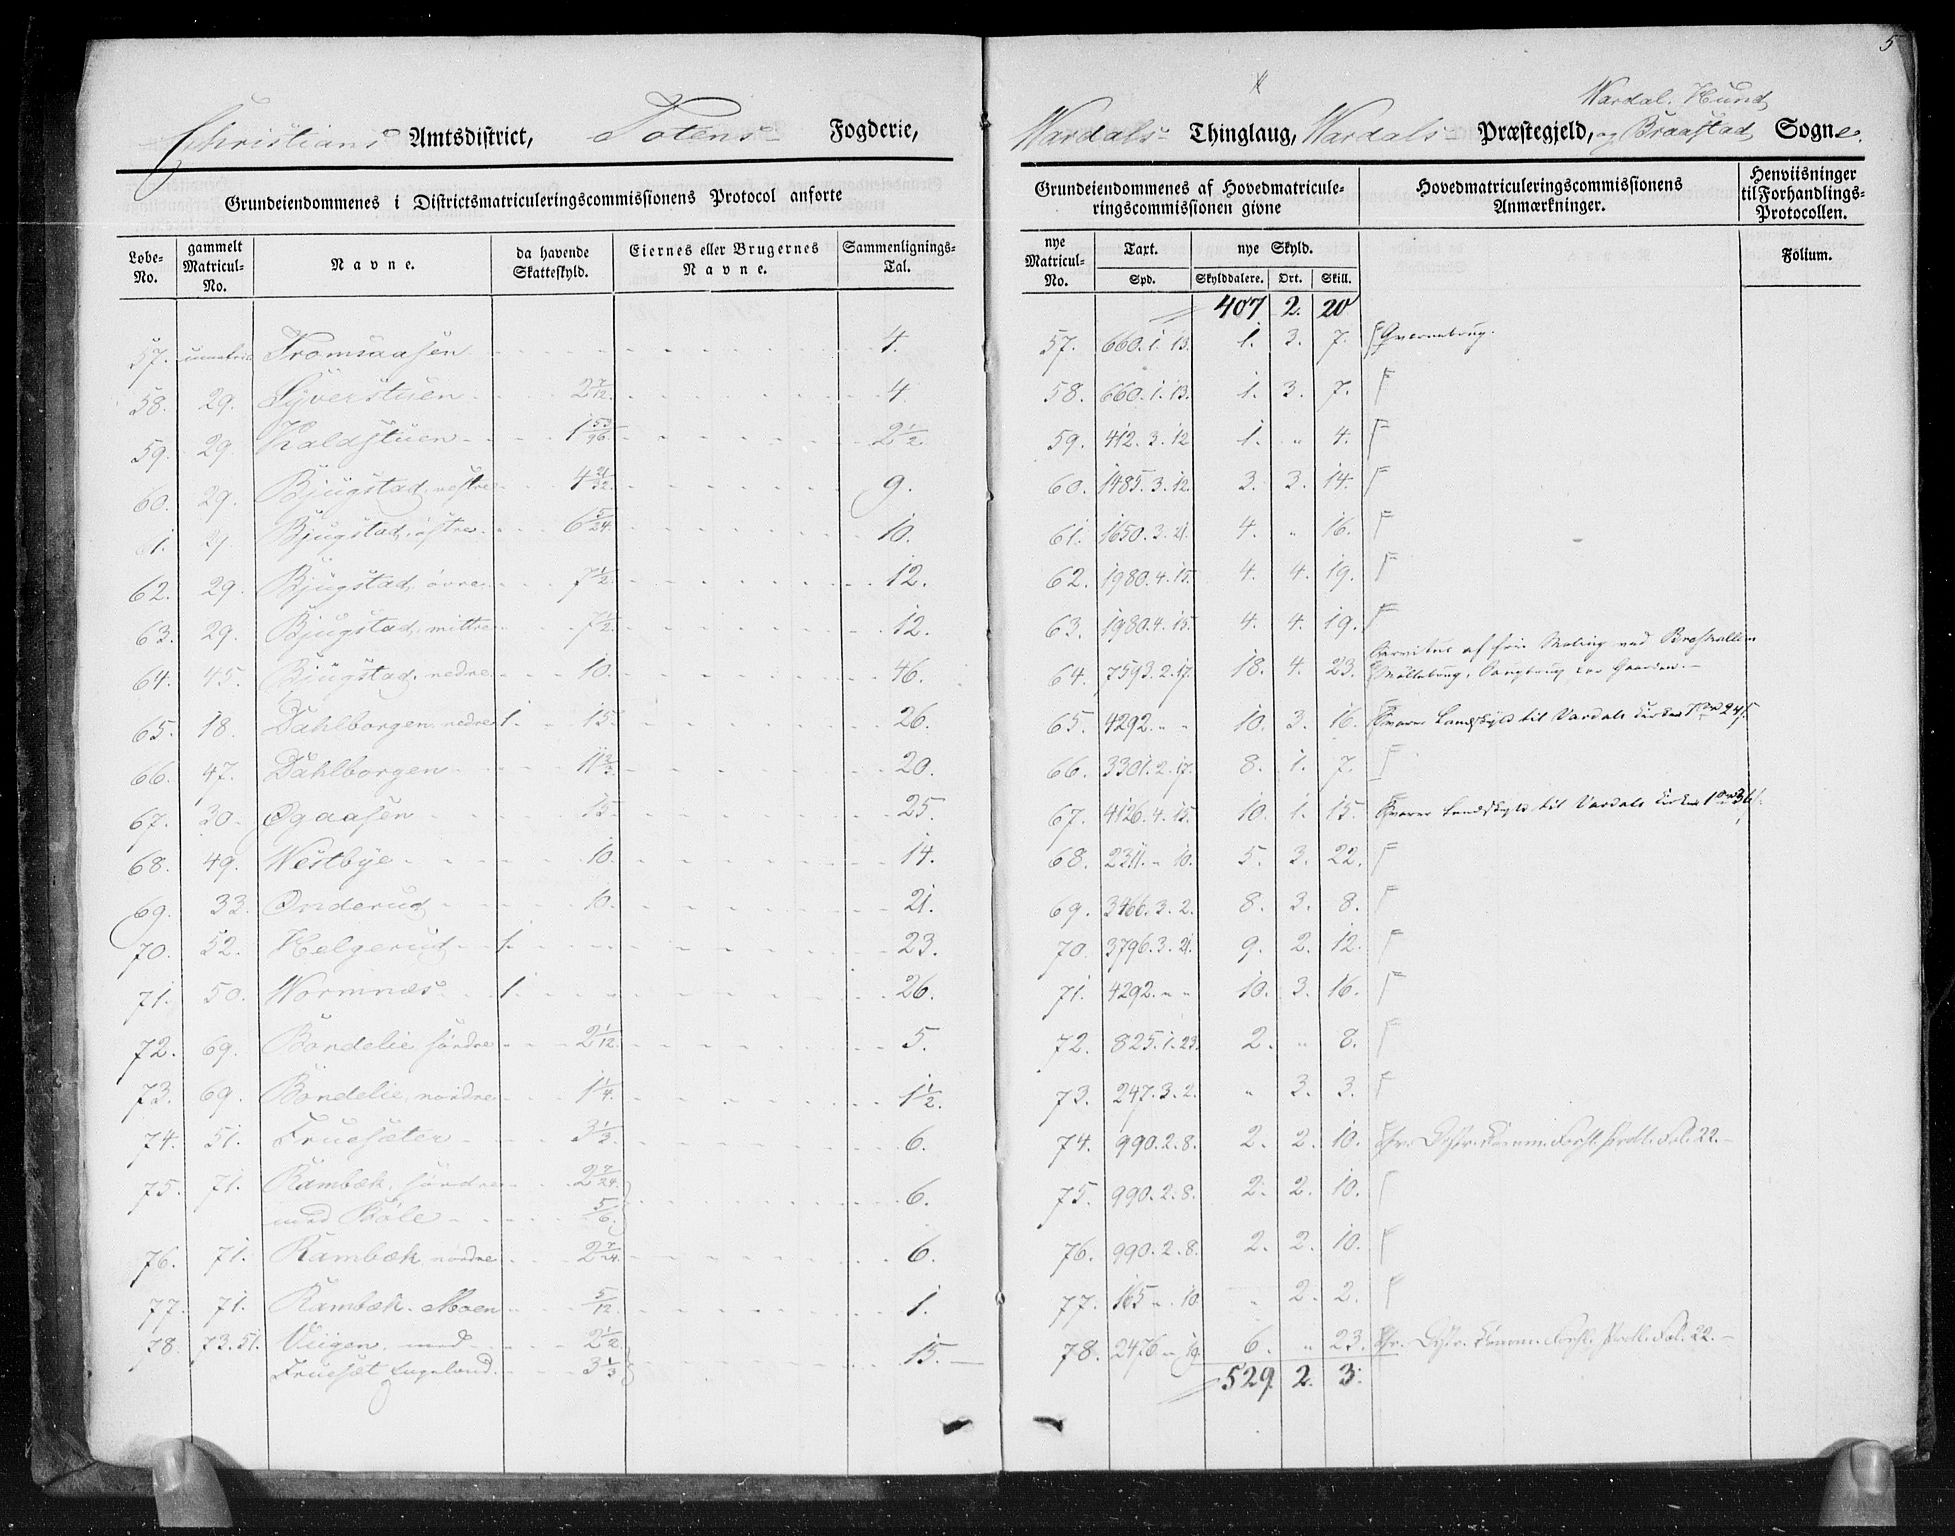 5
Wardal. Hund
Christians Amtsdistrict, Totens Fogderie, Wardals Thinglaug, Wardals Præstegjeld, og Braastad Sogne.
Grundeiendommenes i Districtsmatriculeringscommissionens Protocol anførte
Grundeiendommenes af Hovedmatriculeringscommissionen givne
Hovedmatriculeringscommissionens Anmærkninger.
Henviisninger til Forhandlings-Protocollen.
Løbe-No. gammelt Matricul-No. Navne. da havende Skatteskyld. Eiernes eller Brugernes Navne. Sammenlignings-Tal. nye Matricul-No. Taxt. Spd. nye Skyld. Skylddalere. Ort. Skill. Follum.
407 2. 20
57. Fromsaasen 4. 57. 660.1.13. 1. 3. 7. Qvernebrug.
58. 29. Syverstuen 2 7/12. 4. 58. 660.1.13. 1. 3. 7. F
59. 29. Kaldstuen 1 53/96. 2 1/2. 59. 412.3.12 1. " 4. F
60. 29. Bjugstad, vestre 4 21/32. 9. 60. 1485.3.12. 3. 3. 14. F
61. 29. Bjugstad, østre 6 5/24. 10. 61. 1650.3.21. 4. " 16. F
62. 29. Bjugstad, øvre 7 1/2. 12. 62. 1980.4.15. 4. 4. 19. F
63. 29. Bjugstad, mittre 7 1/2. 12. 63. 1980.4.15. 4. 4. 19. F
64. 45. Bjugstad, nedre 10. 46. 64. 7593.2.17. 18. 4. 23. Servitut af frie Maling ved Breskallen
Møllebrug, Saugbrug
65. 18. Dahlborgen, nedre 1. 15. 26. 65. 4292. " " 10. 3. 16. svarer Landskyld til Vardals Kirke
66. 47. Dahlborgen 11 2/3. 20. 66. 3301.2.17. 8. 1. 7. F
67. 30. Øgaasen 15 25. 67. 4126.4.15. 10. 1. 15. svarer Landskyld til Vardals Kirke
68. 49. Westbye 10. 14. 68. 2311. " 10. 5. 3. 22. F
69. 33. Onderud 10. 21. 69. 3466.3.2. 8. 3. 8. F
70. 52. Helgerud 1. 23. 70. 3796.3.21. 9. 2. 12. F
71. 50. Wormnæs 1. 26. 71. 4292. " " 10. 3. 16. F
72. 69. Bondelie søndre 2 1/12. 5. 72. 825.1.23. 2. " 8. F
73. 69. Bondelie, nordre 1 1/4. 1 1/2. 73. 247.3.2. " 3. 3. F
74. 51. Fruesæter 3 1/3. 6. 74. 990.2.8. 2. 2. 10. Fol. 22.
75. 71. Rambæk, søndre 2 7/24. 6. 75. 990.2.8. 2. 2. 10. F
med Bøle 5/6.
76. 71. Rambæk, nordre 2 7/24. 6. 76. 990.2.8. 2. 2. 10. F
77. 71. Rambæk. Moen 5/12. 1. 77. 165 " 10 " 2. 2. F
78. 73.51. Viigen, med 2 1/2. 15. 78. 2476 " 19. 6. " 23. Fol. 22.
Fruesæt Engeland. 3 1/3
529. 2. 3.